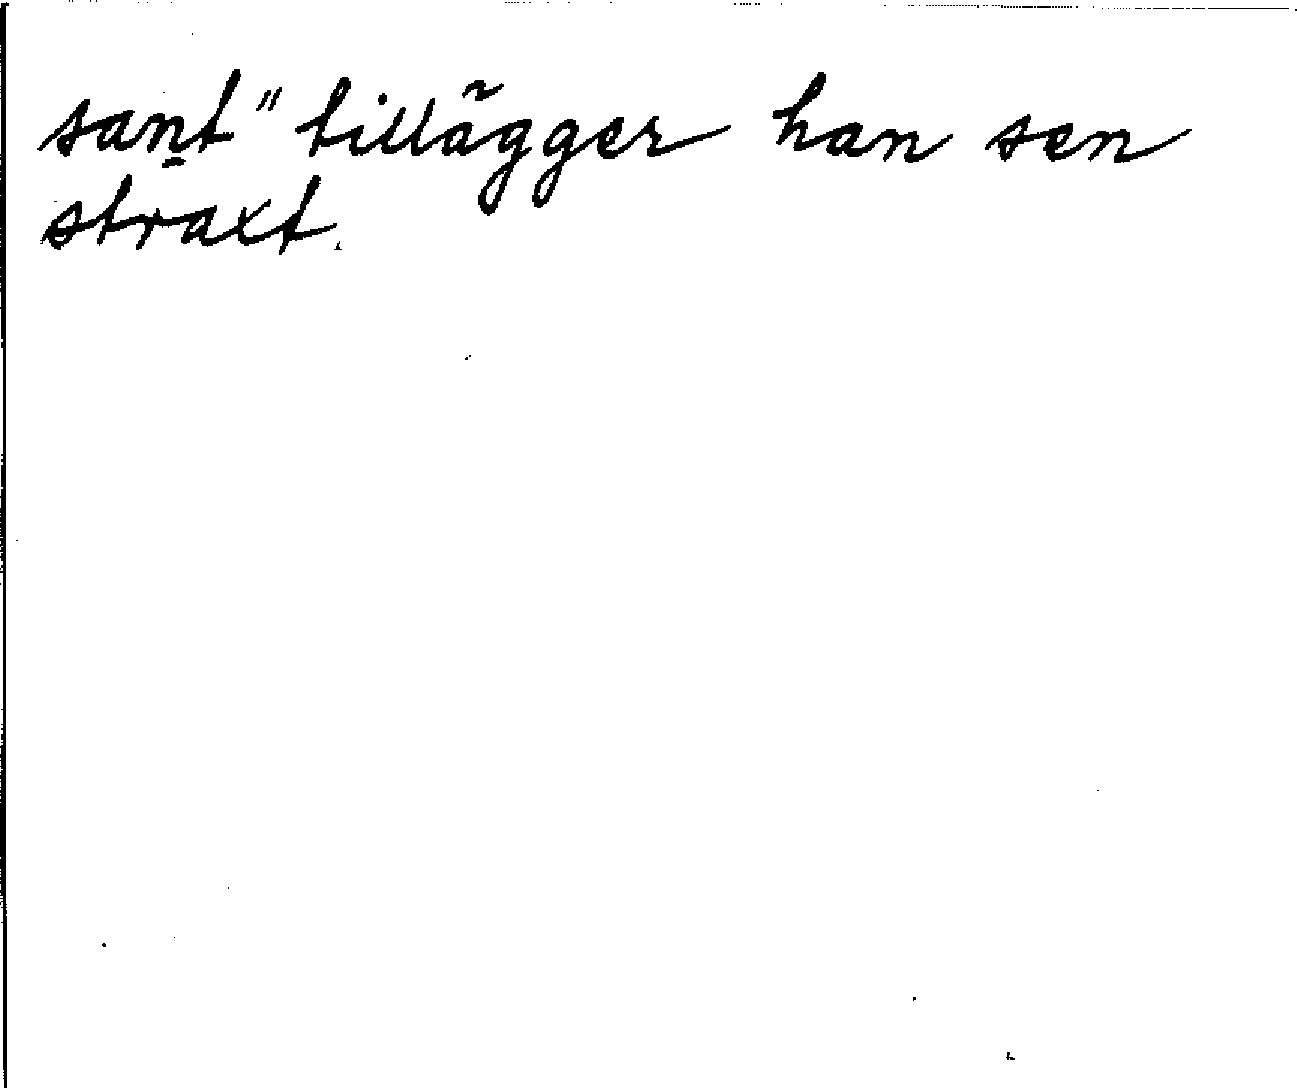 sant" tillägger han sen
straxt.